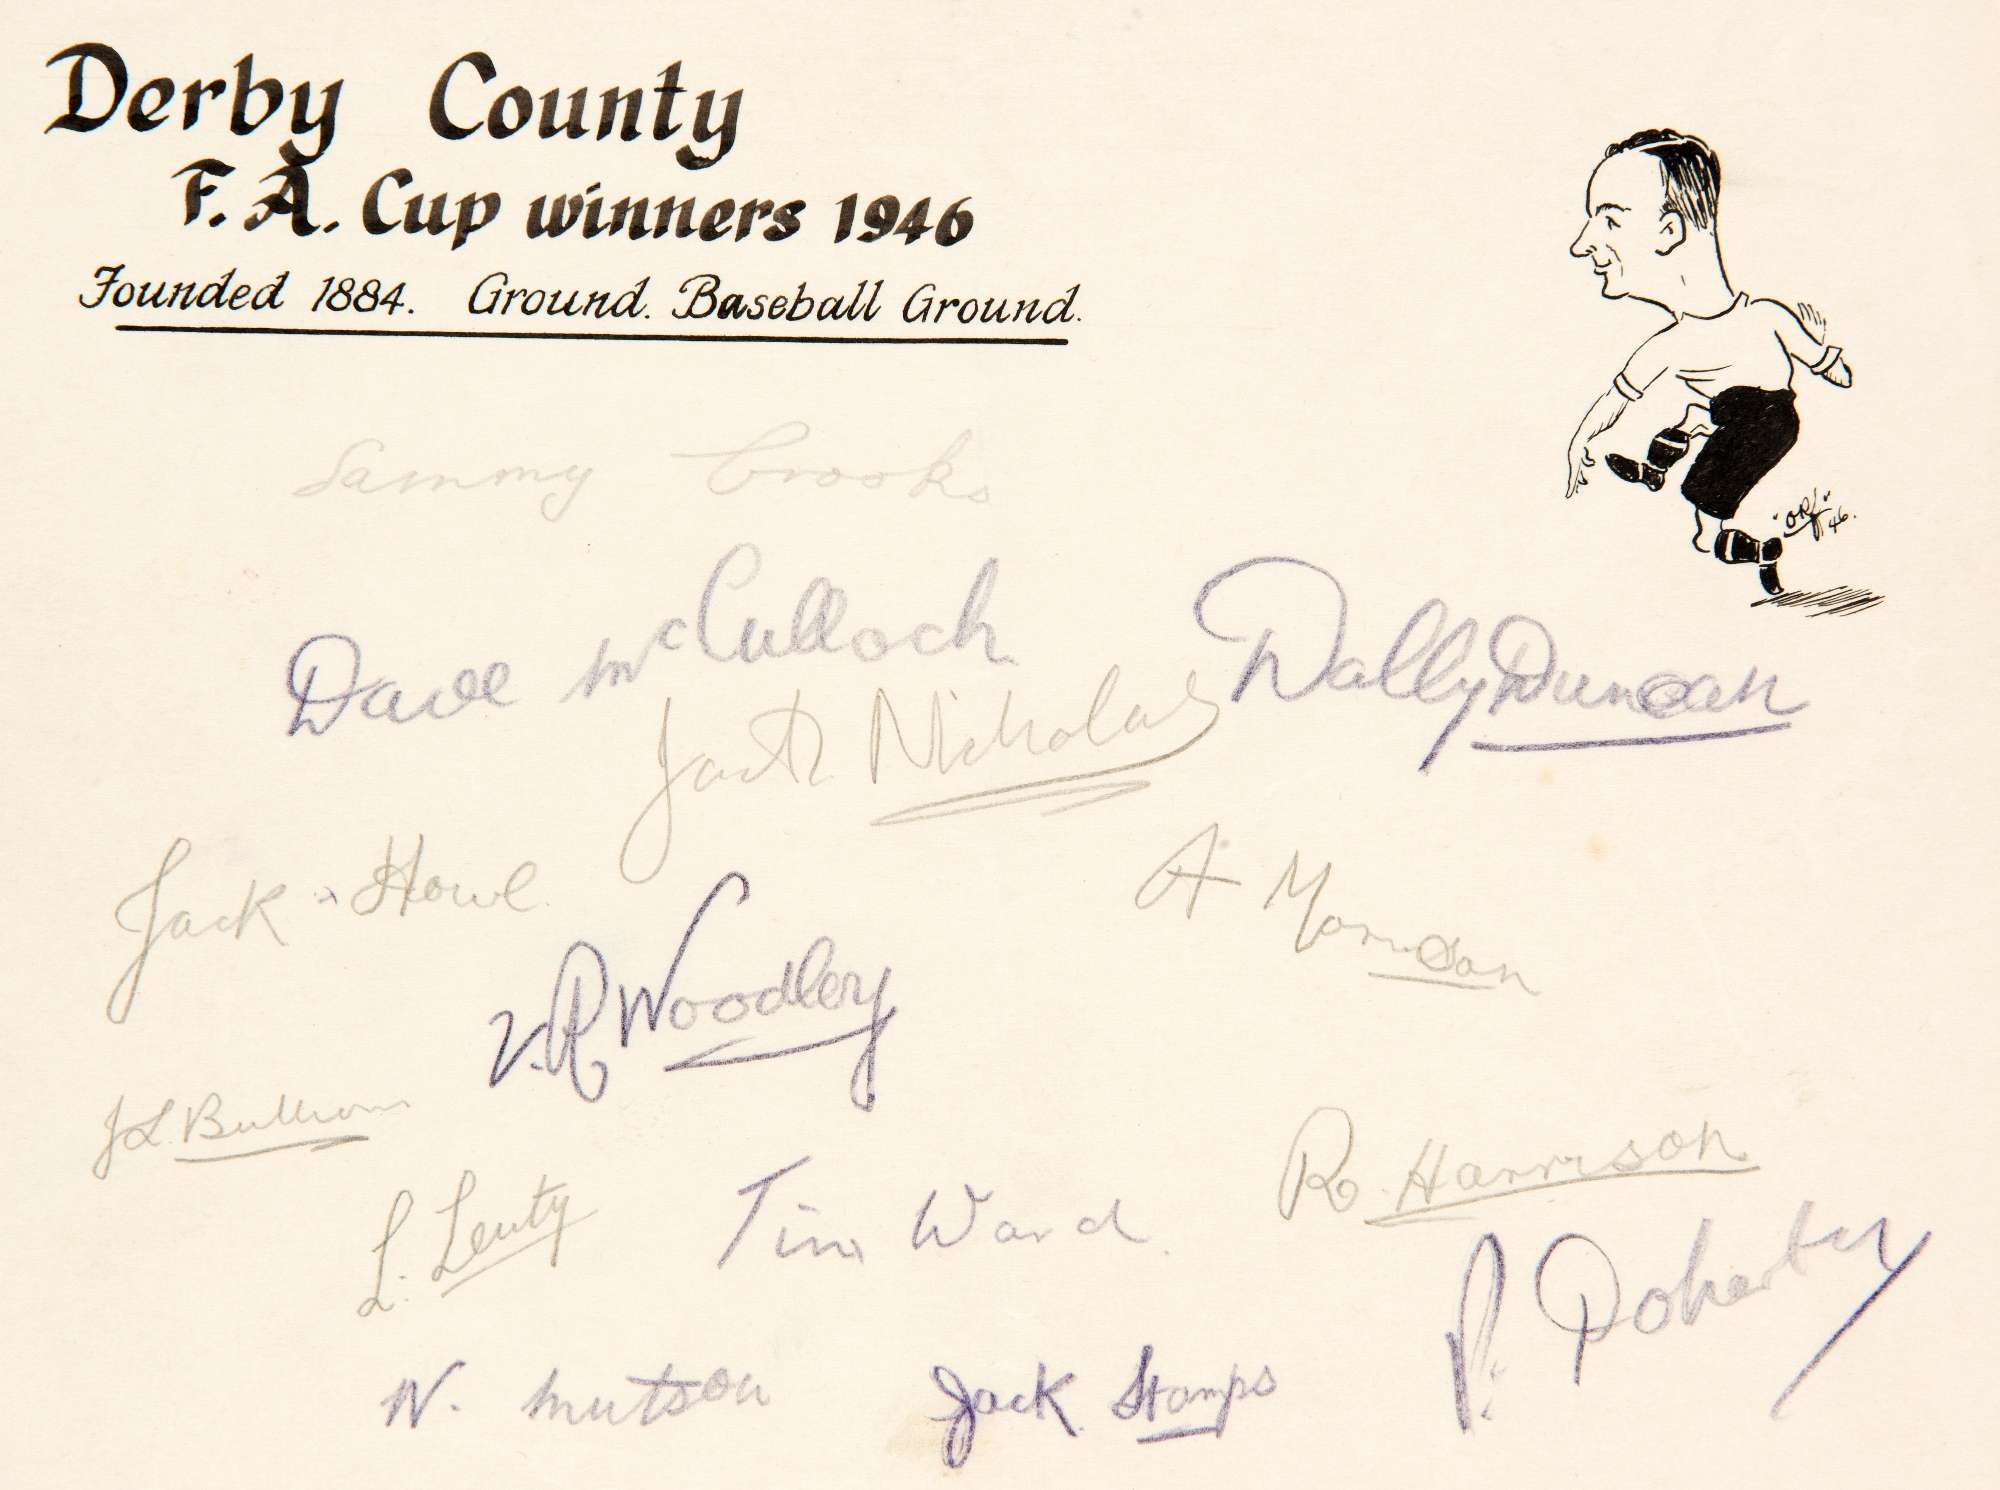 Derby County
F. A. Cup winners 1946
Founded 1884. Ground. Baseball Ground.
"ORJ" 46.
Sammy Crooks
Dave McCulloch
Dally Duncan
Jack Nicholas
Jack Howe
A Morrison
V. R Woodley
J L Bullions
R. Harrison
L. Leuty
Tim Ward
P. Doherty
W. Mutson
Jack Stamps